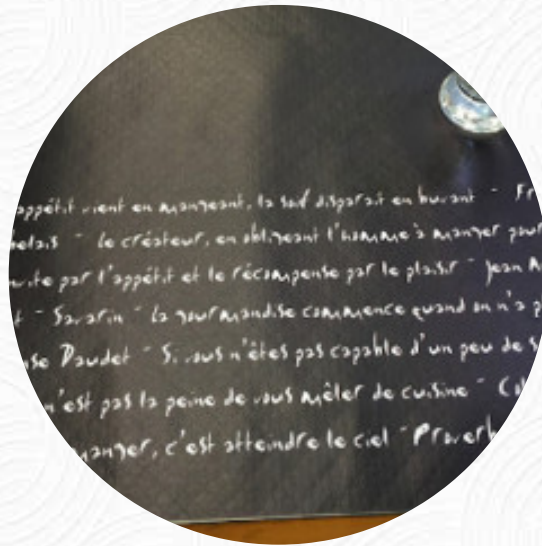 appétit vient en mangeant, la soif disparait en buvant - Fr
belais - Le créateur, en obligeant l'homme à manger pour
vite par l'appétit et le récompense par le plaisir - Jean A
t - Savarin - La gourmandise commence quand on n'a p
se Daudet - Si vous n'êtes pas capable d'un peu de s
n'est pas la peine de vous mêler de cuisine - Co
manger, c'est atteindre le ciel - Proverb